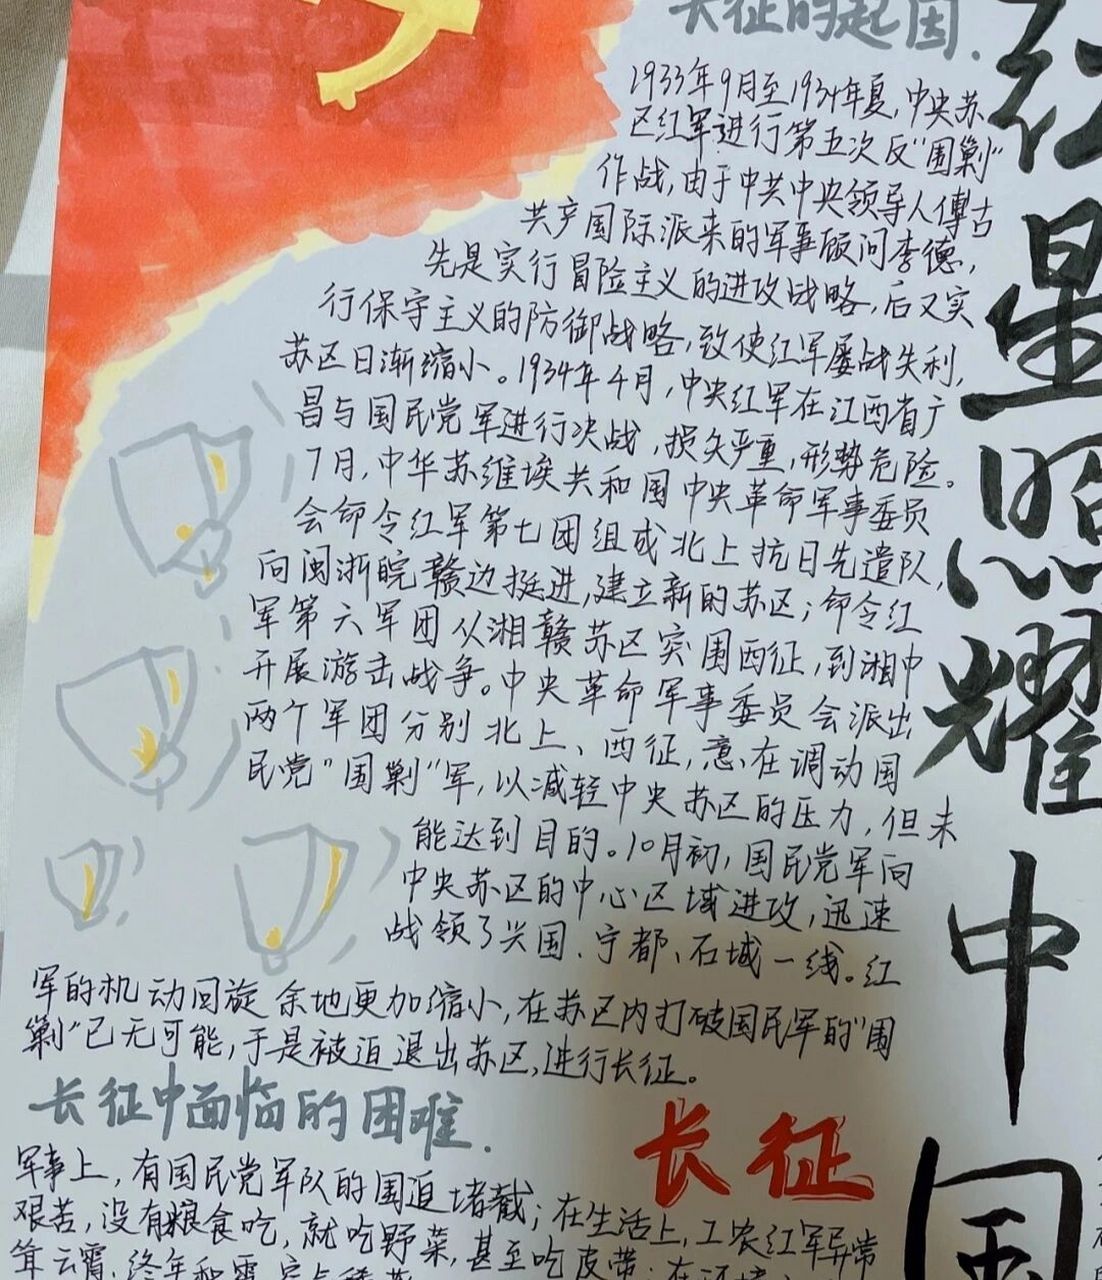 长征的起因.
1933年9月至1934年夏,中央苏
区红军进行第五次反"围剿"
作战,由于中共中央领导人傅古
共产国际派来的军事顾问李德,
先是实行冒险主义的进攻战略,后又实
行保守主义的防御战略,致使红军屡战失利,
苏区日渐缩小。1934年4月,中央红军在江西省广
昌与国民党军进行决战,损失严重,形势危险。
7月,中华苏维埃共和国中央革命军事委员
会命令红军第七团组成北上抗日先遣队,
向闽浙皖赣边挺进,建立新的苏区;命令红
军第六军团从湘赣苏区突围西征,到湘中
开展游击战争。中央革命军事委员会派出
两个军团分别北上、西征,意在调动国
民党"围剿"军,以减轻中央苏区的压力,但未
能达到目的。10月初,国民党军向
中央苏区的中心区域进攻,迅速
战领了兴国、宁都、石城一线。红
军的机动回旋余地更加缩小,在苏区内打破国民军的"围
剿"已无可能,于是被迫退出苏区,进行长征。
长征中面临的困难.
军事上,有国民党军队的围追堵截;在生活上,工农红军异常
艰苦,没有粮食吃,就吃野菜,甚至吃皮带;在环境
耸云霄,终年积雪,
长征
红星照耀中国